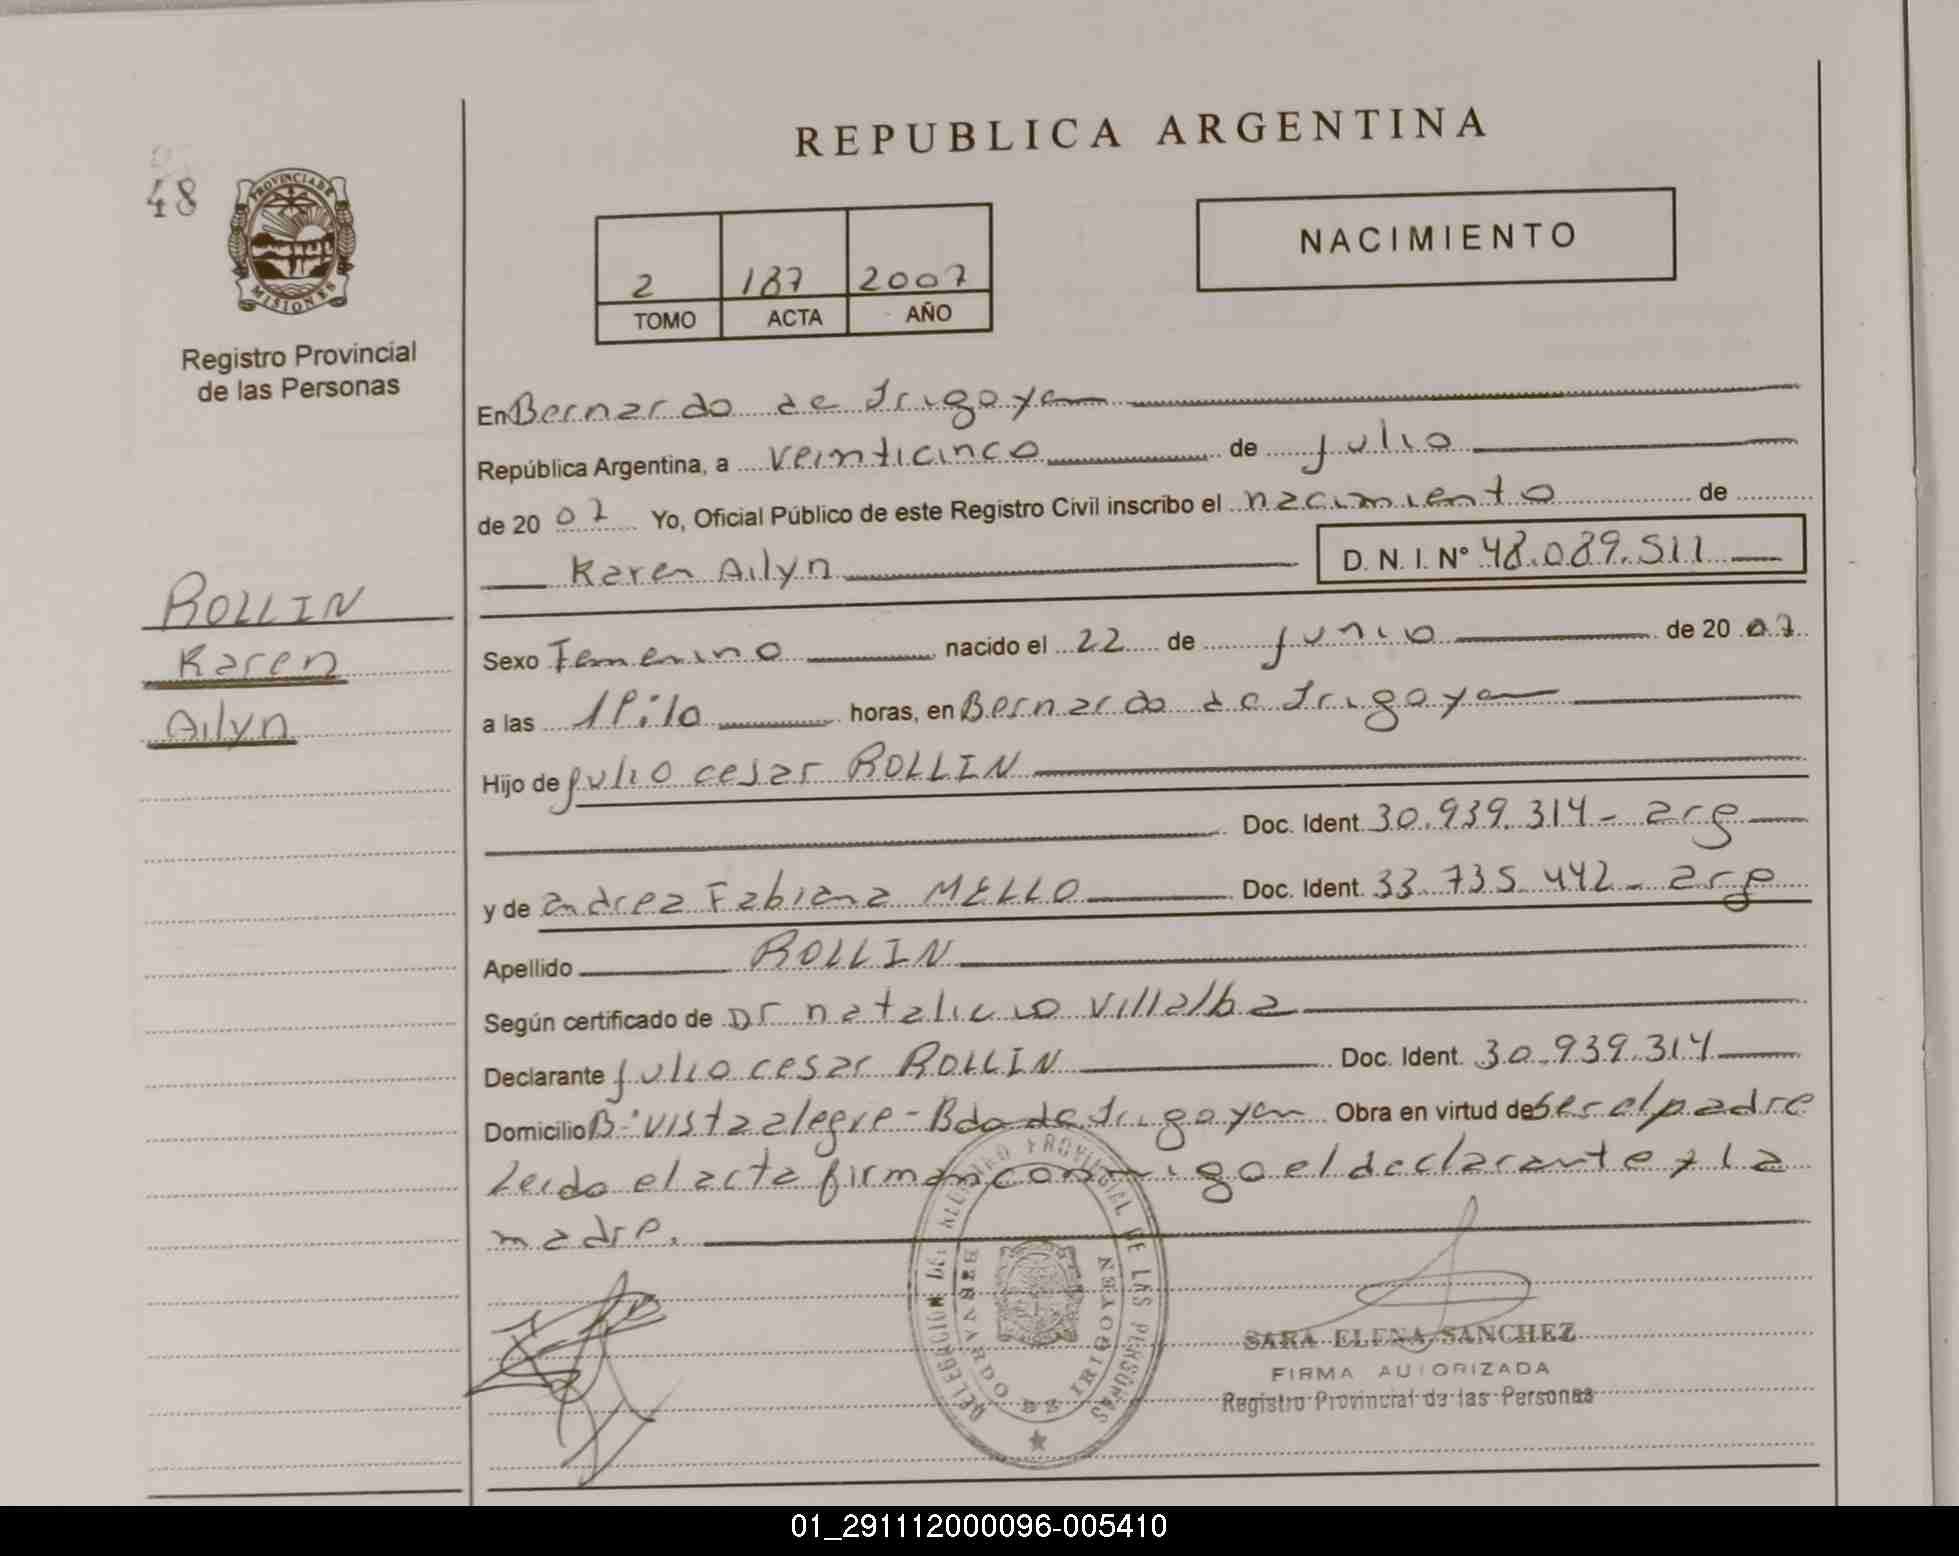 REPUBLICA ARGENTINA
48
PROVINCIA DE MISIONES
Registro Provincial
de las Personas
NACIMIENTO
2 187 2007
TOMO ACTA AÑO
En Bernardo de Irigoyen
República Argentina, a veinticinco de julio
de 2007 Yo, Oficial Público de este Registro Civil inscribo el nacimiento de
Karen Ailyn D. N. I. N° 48.089.511
ROLLIN
Karen
Ailyn
Sexo Femenino nacido el 22 de junio de 2007
a las horas, en Bernardo de Irigoyen
Hijo de Julio cesar ROLLIN
Doc. Ident. 30.939.314 - arg
y de andrea Fabiana MELLO Doc. Ident. 33.735.442 - arg
Apellido ROLLIN
Según certificado de Dr natalicio Villalba
Declarante Julio cesar ROLLIN Doc. Ident. 30.939.314
Domicilio B° vista alegre - Bdo de Irigoyen Obra en virtud de ser el padre
Leido el acta firman conmigo el declarante y la
madre.
DELEGACION DEL REGISTRO PROVINCIAL DE LAS PERSONAS
BERNARDO DE IRIGOYEN
SARA ELENA SANCHEZ
FIRMA AUTORIZADA
Registro Provincial de las Personas
01_291112000096-005410